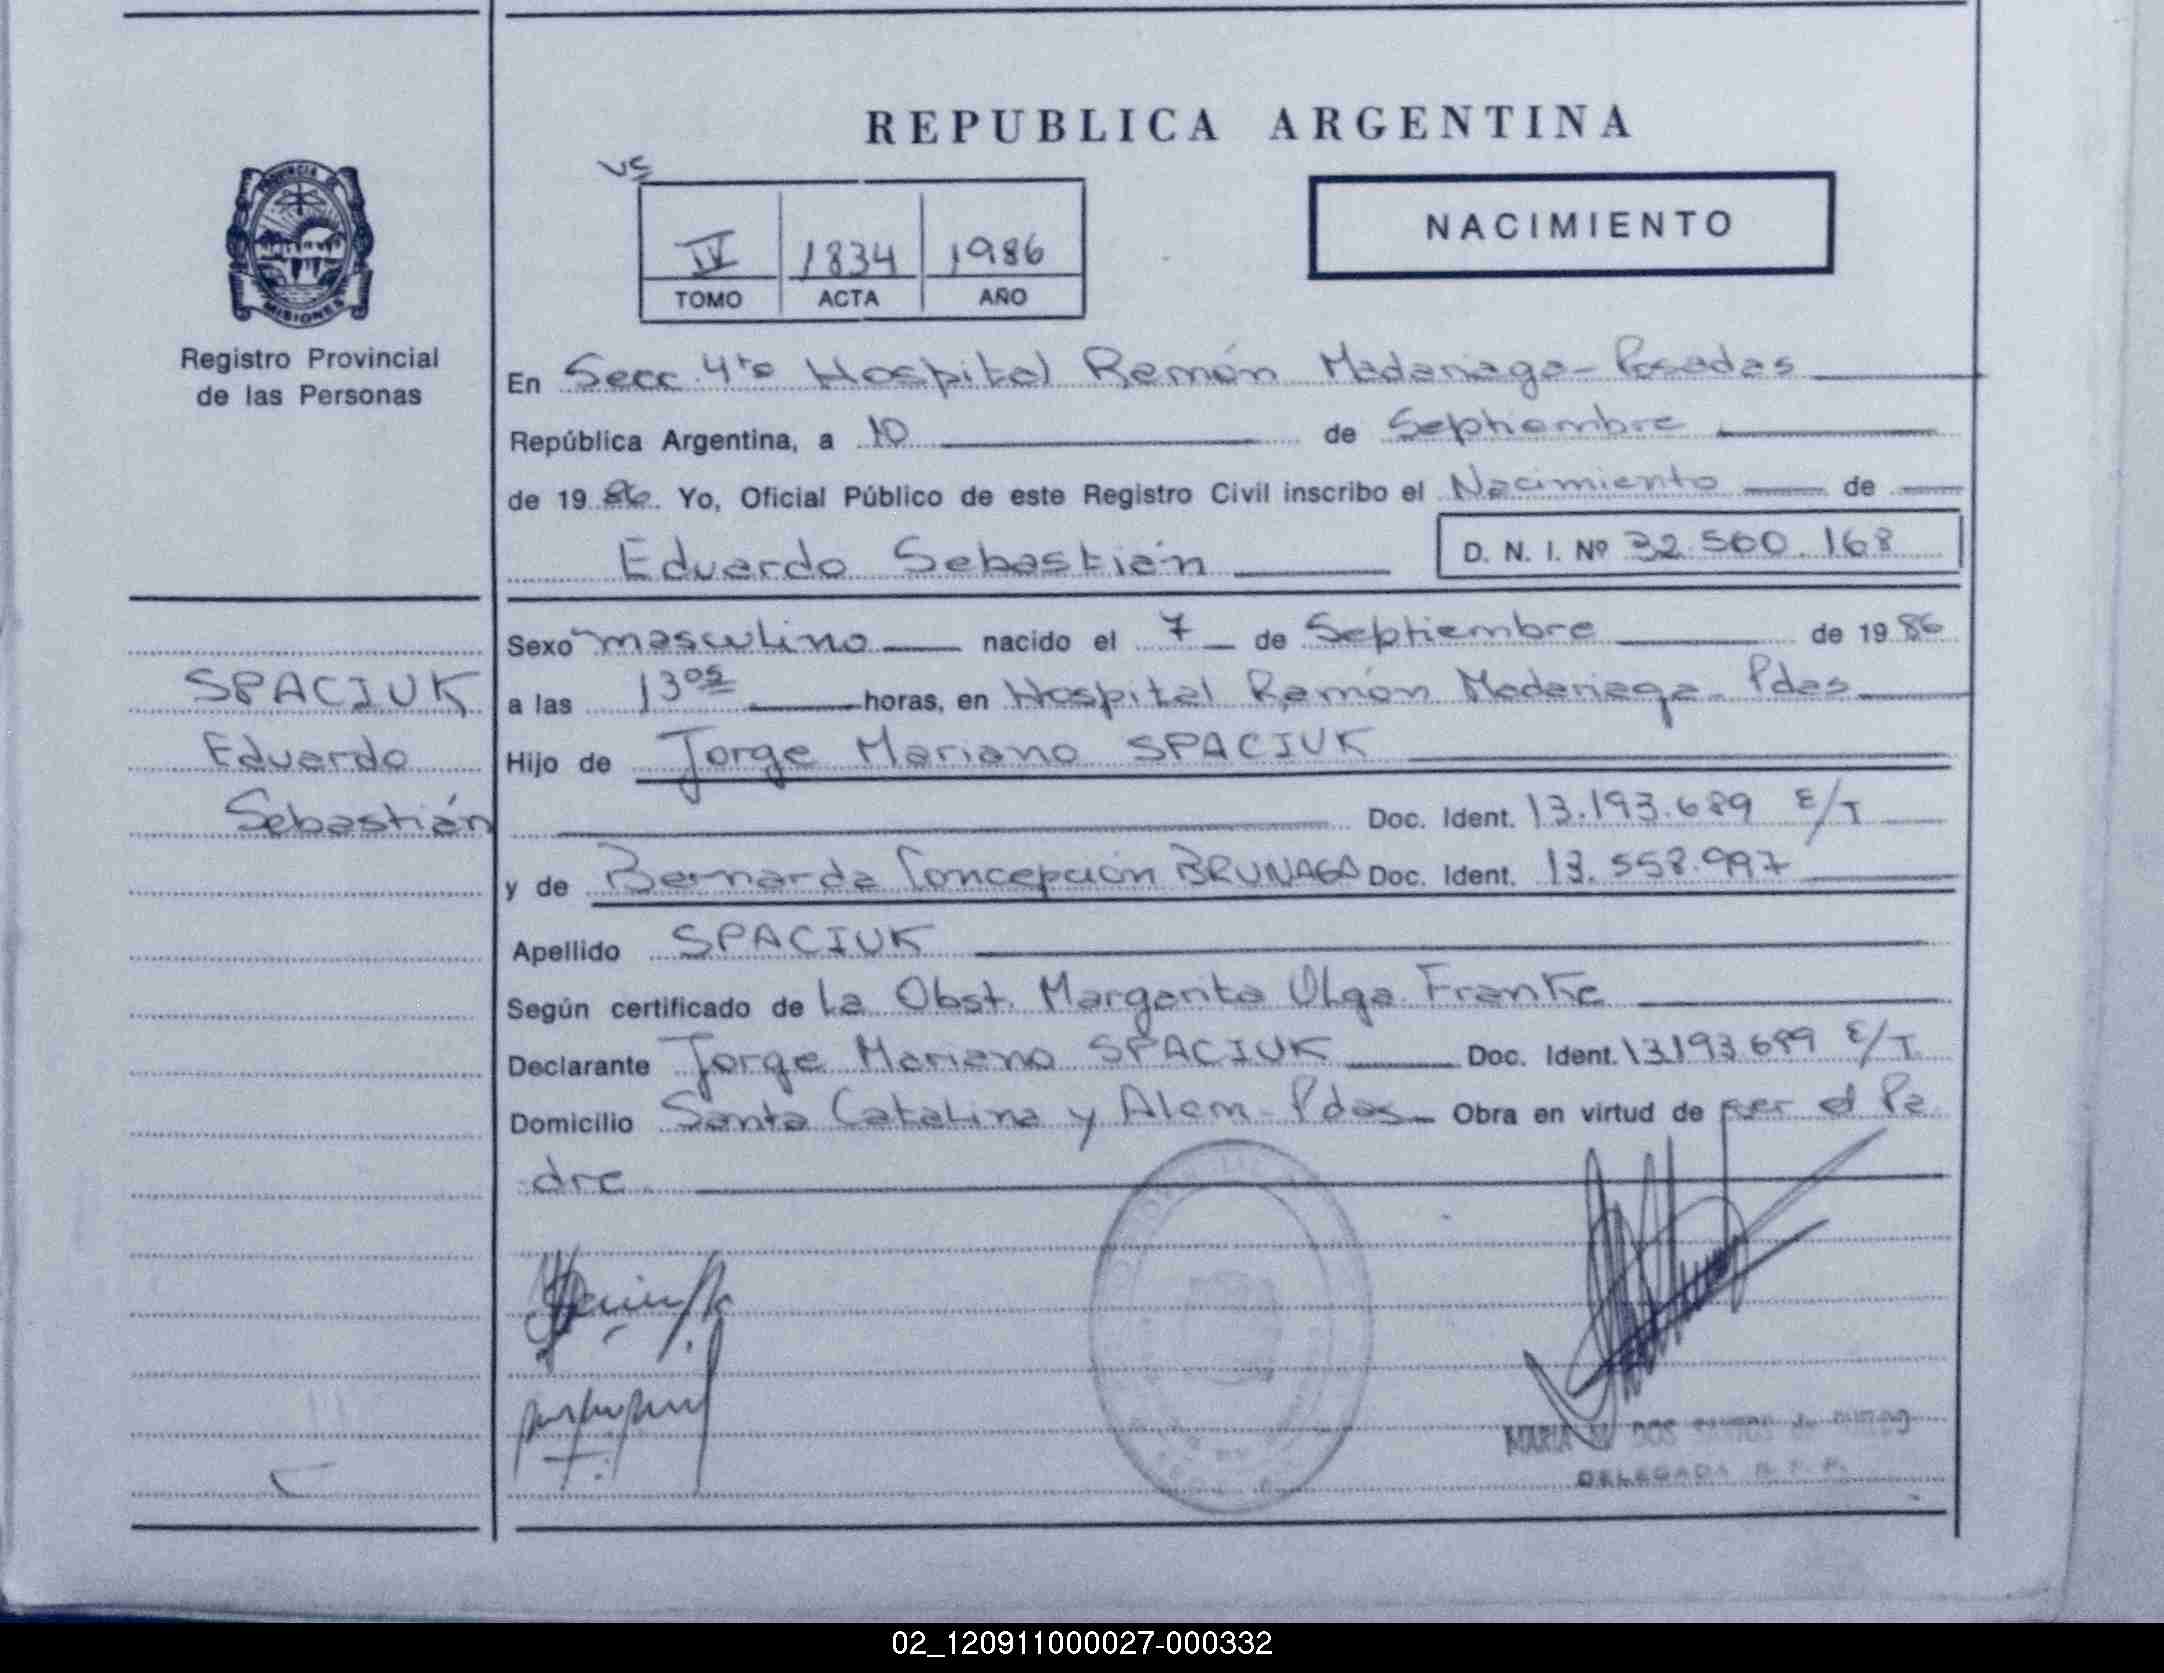 REPUBLICA ARGENTINA
PROVINCIA DE
MISIONES
Registro Provincial
de las Personas
IV 1834 1986
TOMO ACTA AÑO
NACIMIENTO
En Secc. 4ta Hospital Ramón Madariaga - Posadas
República Argentina, a 10 de Septiembre
de 1986. Yo, Oficial Público de este Registro Civil inscribo el Nacimiento de
Eduardo Sebastián D. N. I. Nº 32.500.168
Sexo masculino nacido el 7 de Septiembre de 1986
SPACIUK
Eduardo
Sebastián
a las 13 05 horas, en Hospital Ramón Madariaga - Pdas
Hijo de Jorge Mariano SPACIUK
Doc. Ident. 13.193.689 E/T
y de Bernarda Concepción Doc. Ident. 13.558.997
Apellido SPACIUK
Según certificado de la Obst. Margarita Olga Franke
Declarante Jorge Mariano SPACIUK Doc. Ident. 13.193.689 E/T
Domicilio Santa Catalina y Alem - Pdas Obra en virtud de ser el Pa
dre
MARIA DOS SANTOS de
DELEGADA R. P. P.
02_120911000027-000332